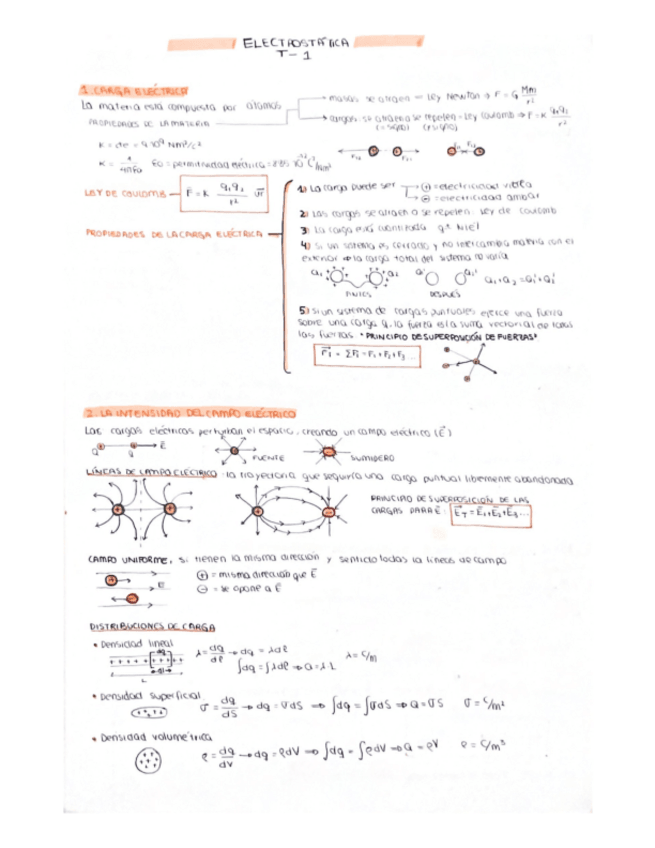 ELECTROSTÁTICA
T-1
1. CARGA ELÉCTRICA
La materia está compuesta por átomos
masas se atraen = Ley Newton ⇒ F = G Mm/r²
PROPIEDADES DE LA MATERIA
cargas se atraen o se repelen = Ley Coulomb ⇒ F = K q₁q₂/r²
K = cte = 9·10⁹ Nm²/c²
K = 1/4πε₀
LEY DE COULOMB
F = K q₁q₂/r² ur
PROPIEDADES DE LA CARGA ELÉCTRICA
1) La carga puede ser
⊕ = electricidad vitrea
⊖ = electricidad ambar
2) Las cargas se atraen o se repelen: Ley de coulomb
3) La carga está cuantizada
4) Si un sistema es cerrado y no intercambia materia con el
exterior ⇒ la carga total del sistema no varía
Q₁ Q₂ Q₁' Q₂' Q₁ + Q₂ = Q₁' + Q₂'
ANTES DESPUÉS
5) Si un sistema de cargas puntuales ejerce una fuerza
sobre una carga q, la fuerza es la suma vectorial de todas
las fuerzas "PRINCIPIO DE SUPERPOSICIÓN DE FUERZAS"
= ΣFi = F₁ + F₂ + F₃ ...
2. LA INTENSIDAD DEL CAMPO ELÉCTRICO
Las cargas eléctricas perturban el espacio, creando un campo eléctrico (E)
Q q E
FUENTE SUMIDERO
LÍNEAS DE CAMPO ELÉCTRICO: la trayectoria que seguiría una carga puntual libremente abandonada
PRINCIPIO DE SUPERPOSICIÓN DE LAS
CARGAS PARA E: E_T = E₁ + E₂ + E₃ ...
CAMPO UNIFORME, si tienen la misma dirección y sentido todas la líneas de campo
⊕ = misma dirección que E
E
⊖ = se opone a E
DISTRIBUCIONES DE CARGA
• Densidad lineal
dq
λ = dq/dl → dq = λdl λ = C/m
∫dq = ∫λdl ⇒ Q = λ·L
L
• Densidad superficial
σ = dq/dS → dq = σdS ⇒ ∫dq = ∫σdS ⇒ Q = σS σ = C/m²
• Densidad volumétrica
ρ = dq/dV → dq = ρdV ⇒ ∫dq = ∫ρdV ⇒ Q = ρV ρ = C/m³